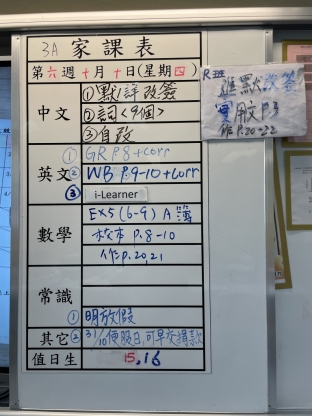 3A 家課表
第六週十月十日(星期四)
中文
①默(一)詳改簽
②詞<9個>
③自改
英文
① GR P.8+corr
② WB P.9-10+corr
③ i-Learner
數學
EX5 (6-9) A 簿
校本 P.8-10
作P.20,21
常識
其它
① 明放假
② 31/10便服日,可早交捐款
值日生
15,16
R班
進默改簽
實用紋P.3
作P.20-22